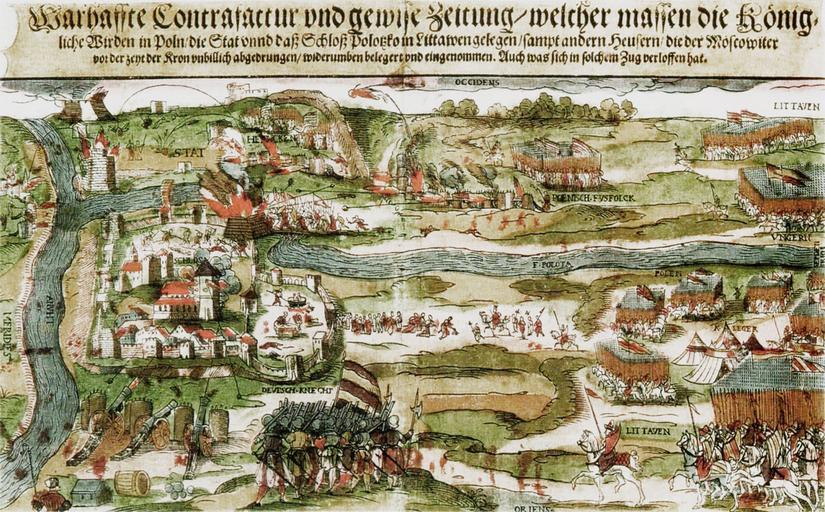 Warhaffte Contrafactur vnd gewise Zeitung/welcher massen die König-
liche Wirden in Poln/die Stat vnnd daß Schloß Polotzko in Littawen gelegen/sampt andern Heusern/die der Moscowiter
vor der zeyt der Kron vnbillich abgedrungen/widerumben belegert vnd eingenommen. Auch was sich in solchem Zug verloffen hat.
OCCIDENS
LITTAVEN
STAT
POENISCH·FVSFOLCK
VNGERN
F·POLOTA
POLEN
LEGER
DEVTSCH·KNECHT
LITTAVEN
ORIENS